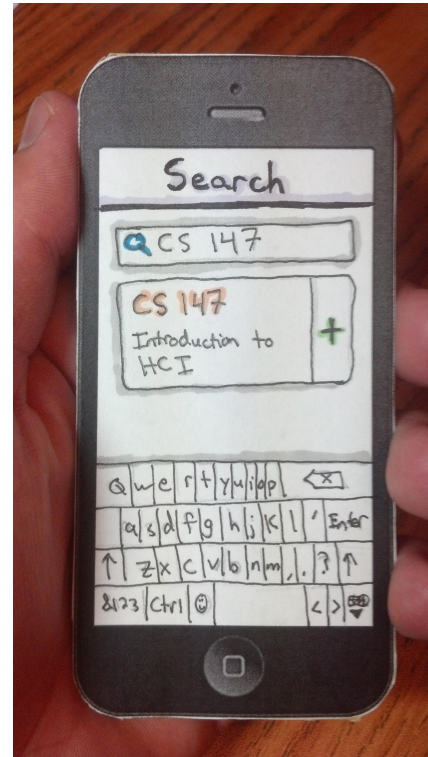 Search
CS 147
CS 147
Introduction to
HCI
Q w e r t y u i o p
a s d f g h j k l ' Enter
↑ z x c v b n m , . ? ↑
&123 Ctrl ☺ < >